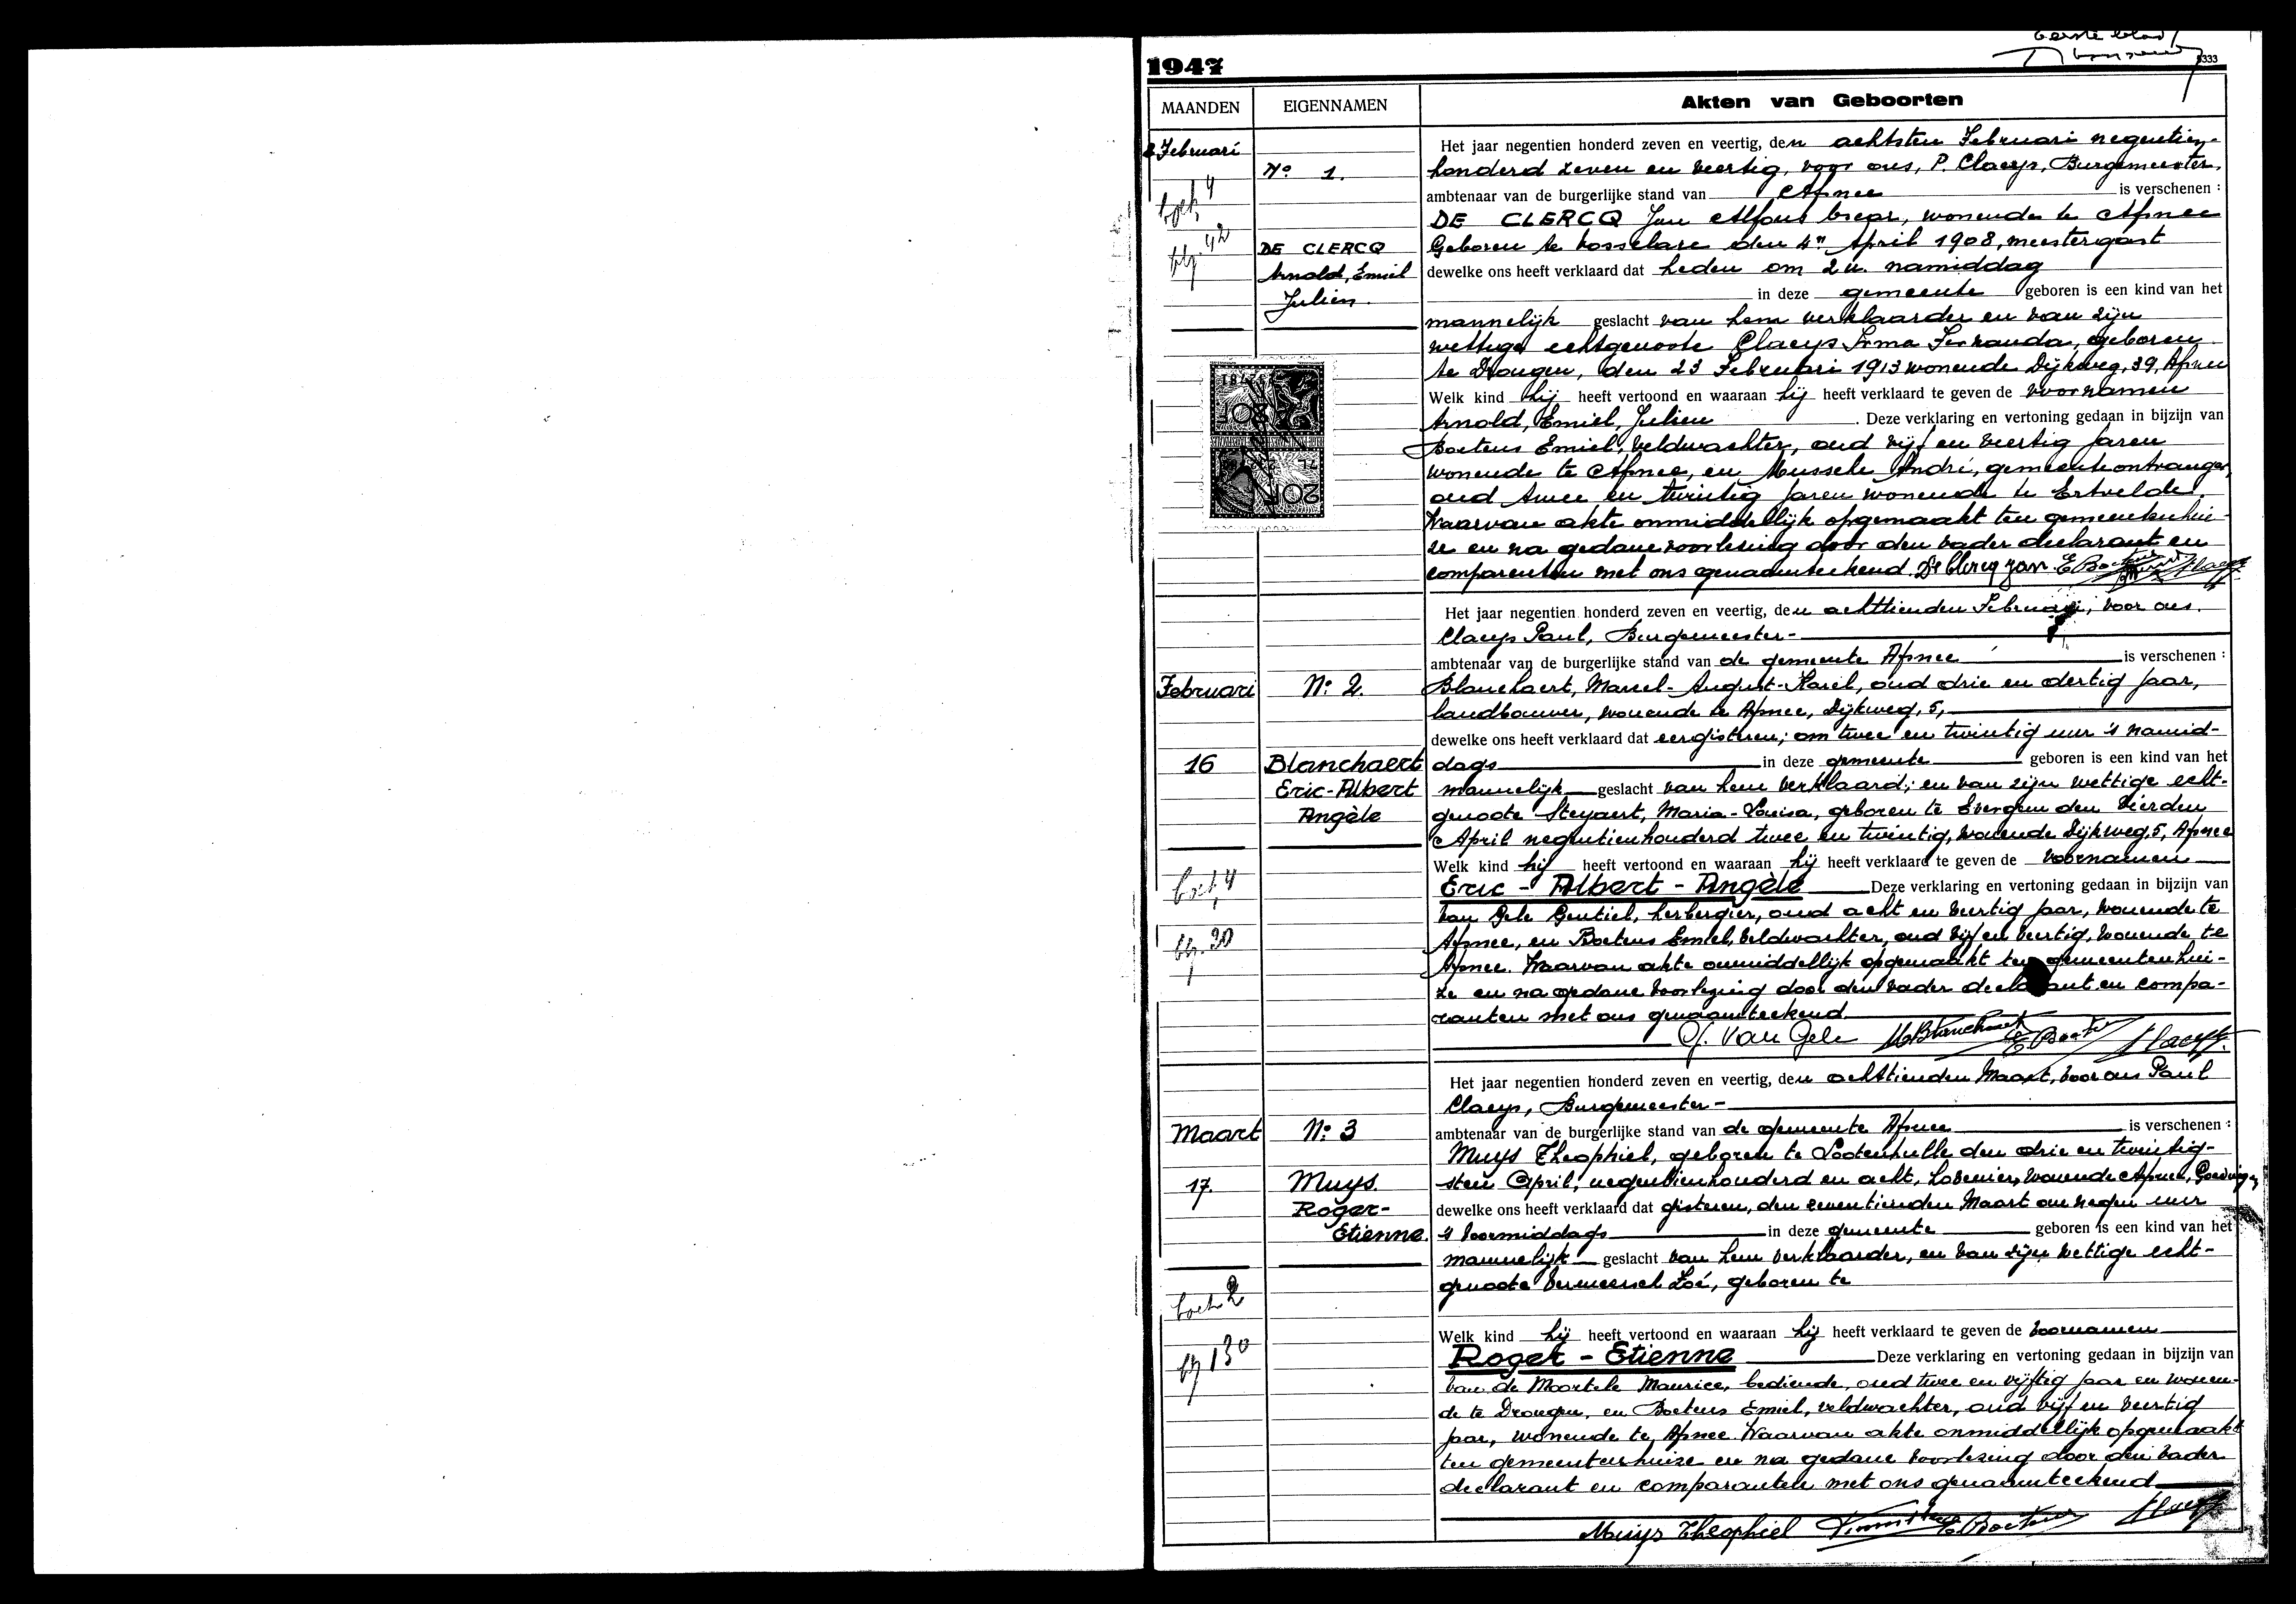 eerste blad
1947
5333
MAANDEN
EIGENNAMEN
Akten van Geboorten
8 Februari
boek 4
blz. 42
N° 1.
DE CLERCQ
Arnold, Emiel
Julien.
Het jaar negentien honderd zeven en veertig, den achtsten Februari negentien-
honderd zeven en veertig, voor ons, P. Claeys, Burgemeester,
ambtenaar van de burgerlijke stand van Afsnee is verschenen :
DE CLERCQ Jan Alfons Cesar, wonende te Afsnee
Geboren te Losselare den 4n April 1908, meestergast
dewelke ons heeft verklaard dat heden om 2 u. namiddag
in deze gemeente geboren is een kind van het
mannelijk geslacht van hem verklaarder en van zijn
wettige echtgenoote Claeys Irma Fernanda, geboren
te Drongen, den 23 Februari 1913 wonende Dijkweg, 39, Afsnee
Welk kind hij heeft vertoond en waaraan hij heeft verklaard te geven de voornamen
Arnold, Emiel, Julien . Deze verklaring en vertoning gedaan in bijzijn van
Boetens Emiel, veldwachter, oud vijf en veertig jaren
wonende te Afsnee, en Mussche André, gemeenteontvanger,
oud twee en twintig jaren wonende te Ertvelde.
Waarvan akte onmiddellijk opgemaakt ten gemeentenhui-
ze en na gedane voorlezing door den vader declarant en
comparenten met ons genaamteekend. De Clercq Jan E Boetens Claeys
Februari
16
boek 4
blz. 30
N: 2.
Blanchaert
Eric-Albert
Angèle
Het jaar negentien honderd zeven en veertig, den achttienden Februari, voor ons.
Claeys Paul, Burgemeester-
ambtenaar van de burgerlijke stand van de gemeente Afsnee is verschenen :
Blanchaert, Marcel-August-Karel, oud drie en dertig jaar,
landbouwer, wonende te Afsnee, Dijkweg, 5,
dewelke ons heeft verklaard dat eergisteren, om twee en twintig uur 's namid-
dags in deze gemeente geboren is een kind van het
mannelijk geslacht van hem verklaard; en van zijn wettige echt-
genoote Steyaert, Maria-Louisa, geboren te Evergem den vierden
April negentienhonderd twee en twintig, wonende Dijkweg, 5, Afsnee
Welk kind hij heeft vertoond en waaraan hij heeft verklaard te geven de voornamen
Eric - Albert - Angèle Deze verklaring en vertoning gedaan in bijzijn van
Van Gele Gentiel, herbergier, oud acht en veertig jaar, wonende te
Afsnee, en Boetens Emiel, veldwachter, oud vijf en veertig, wonende te
Afsnee. Waarvan akte onmiddellijk opgemaakt ten gemeentenhui-
ze en na gedane voorlezing door den vader declarant en compa-
ranten met ons genaamteekend.
G. Van Gele M Blanchaert E Boetens Claeys
Maart
17.
boek 2
blz 130
N: 3
Muys.
Roger-
Etienne.
Het jaar negentien honderd zeven en veertig, den achttienden Maart, voor ons Paul
Claeys, Burgemeester-
ambtenaar van de burgerlijke stand van de gemeente Afsnee is verschenen :
Muys Theophiel, geboren te Lootenhulle den drie en twintig-
sten April, negentienhonderd en acht, hovenier, wonende Afsnee,
dewelke ons heeft verklaard dat gisteren, den zeventienden Maart om negen uur
's voormiddags in deze gemeente geboren is een kind van het
mannelijk geslacht van hem verklaarder, en van zijn wettige echt-
genoote Vermeersch Zoé, geboren te
Welk kind hij heeft vertoond en waaraan hij heeft verklaard te geven de voornamen
Roger - Etienne Deze verklaring en vertoning gedaan in bijzijn van
Van de Moortele Maurice, bediende, oud twee en vijftig jaar en wonen-
de te Drongen, en Boetens Emiel, veldwachter, oud vijf en veertig
jaar, wonende te Afsnee. Waarvan akte onmiddellijk opgemaakt
ten gemeentenhuize en na gedane voorlezing door den vader
declarant en comparanten met ons genaamteekend
Muijs Theophiel E Boetens Claeys